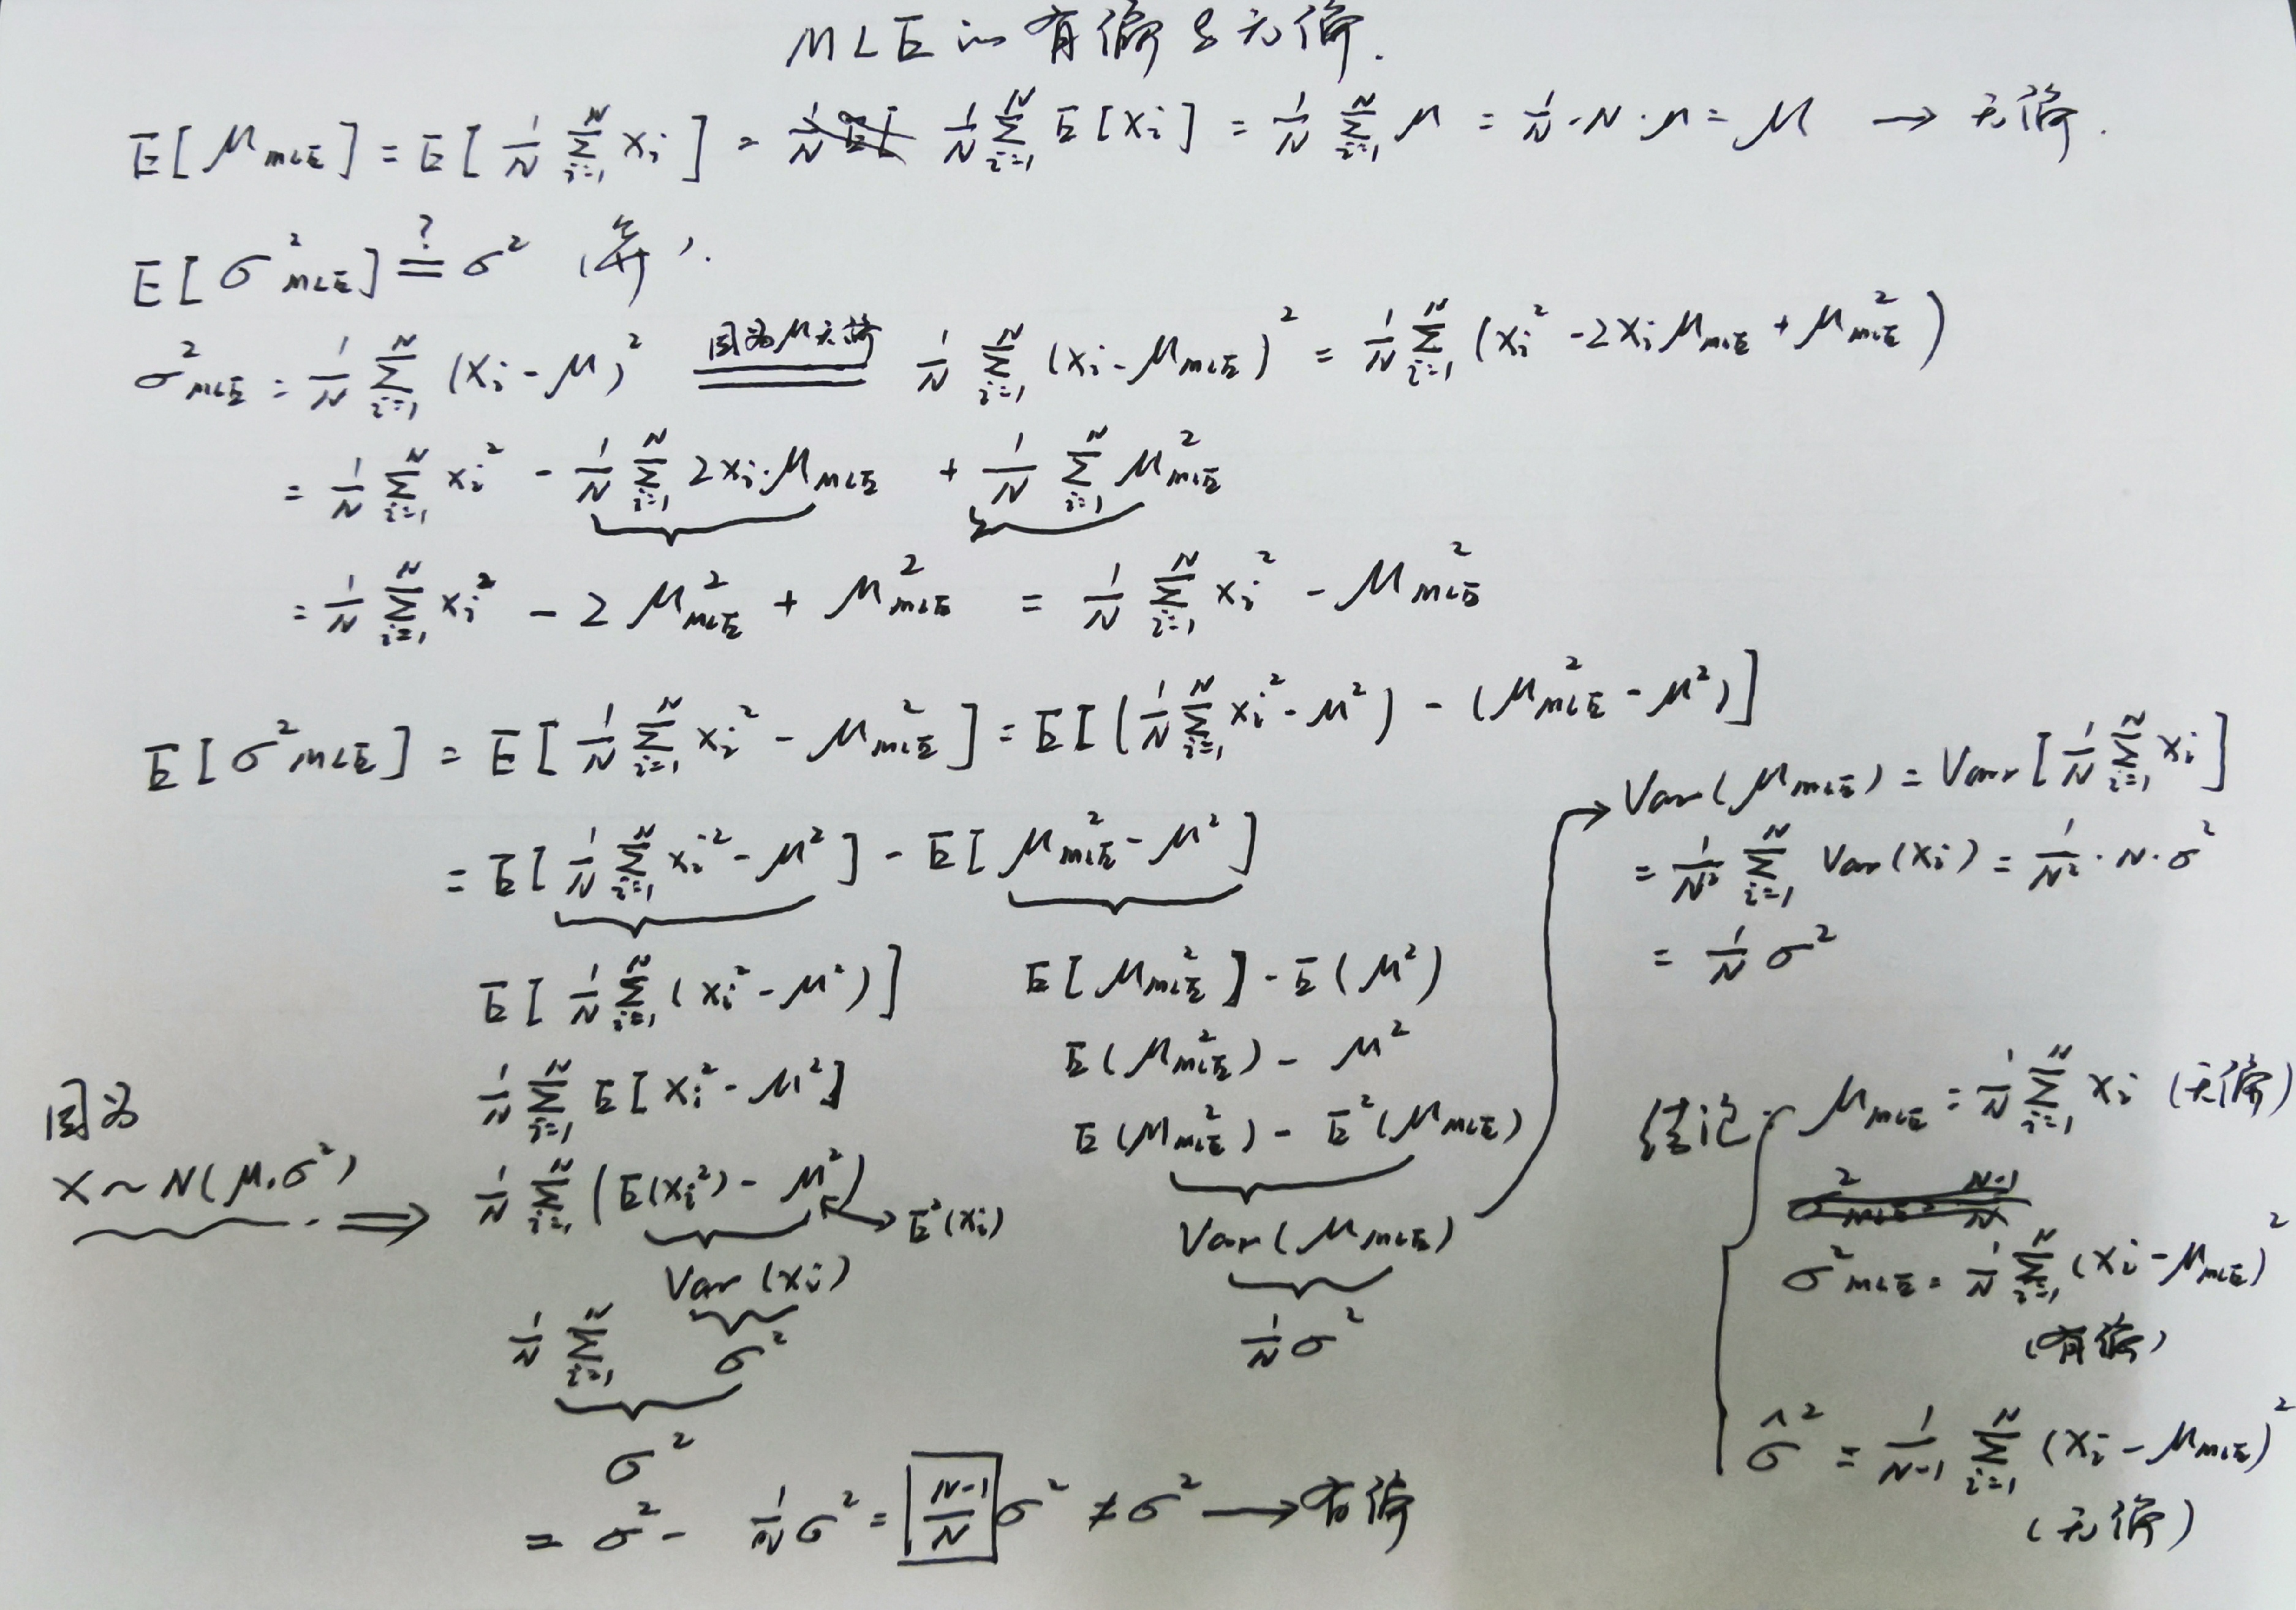 MLE的有偏&无偏.
E[μ_MLE] = E[1/N Σ_{i=1}^{N} x_i] = 1/N Σ_{i=1}^{N} E[x_i] = 1/N Σ_{i=1}^{N} μ = 1/N · N · μ = μ → 无偏.
E[σ²_MLE] ?= σ²
σ²_MLE = 1/N Σ_{i=1}^{N} (x_i - μ)² =(因为μ无偏)= 1/N Σ_{i=1}^{N} (x_i - μ_MLE)² = 1/N Σ_{i=1}^{N} (x_i² - 2x_i μ_MLE + μ²_MLE)
= 1/N Σ_{i=1}^{N} x_i² - 1/N Σ_{i=1}^{N} 2x_i·μ_MLE + 1/N Σ_{i=1}^{N} μ²_MLE
= 1/N Σ_{i=1}^{N} x_i² - 2μ²_MLE + μ²_MLE = 1/N Σ_{i=1}^{N} x_i² - μ²_MLE
E[σ²_MLE] = E[1/N Σ_{i=1}^{N} x_i² - μ²_MLE] = E[(1/N Σ_{i=1}^{N} x_i² - μ²) - (μ²_MLE - μ²)]
= E[1/N Σ_{i=1}^{N} x_i² - μ²] - E[μ²_MLE - μ²]
E[1/N Σ_{i=1}^{N} (x_i² - μ²)]
1/N Σ_{i=1}^{N} E[x_i² - μ²]
因为
X ~ N(μ, σ²) ⇒
1/N Σ_{i=1}^{N} (E(x_i²) - μ²) → E²(x_i)
Var(x_i)
1/N Σ_{i=1}^{N} σ²
σ²
E[μ²_MLE] - E(μ²)
E(μ²_MLE) - μ²
E(μ²_MLE) - E²(μ_MLE)
Var(μ_MLE)
1/N σ²
= σ² - 1/N σ² = (N-1)/N σ² ≠ σ² → 有偏
→ Var(μ_MLE) = Var[1/N Σ_{i=1}^{N} x_i]
= 1/N² Σ_{i=1}^{N} Var(x_i) = 1/N² · N · σ²
= 1/N σ²
结论: μ_MLE = 1/N Σ_{i=1}^{N} x_i (无偏)
σ²_MLE = 1/N Σ_{i=1}^{N} (x_i - μ_MLE)²
(有偏)
σ̂² = 1/(N-1) Σ_{i=1}^{N} (x_i - μ_MLE)²
(无偏)